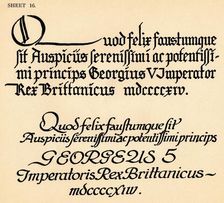 SHEET 16.
Quod felix faustumque
sit Auspiciis serenissimi ac potentissi-
mi princips Georgius V Imperator
Rex Brittanicus mdccccxiv.
Quod felix faustumque sit
Auspiciis serenissimi ac potentissimi princips
GEORGEUS 5
Imperatoris Rex Brittanicus—
mdccccxiv